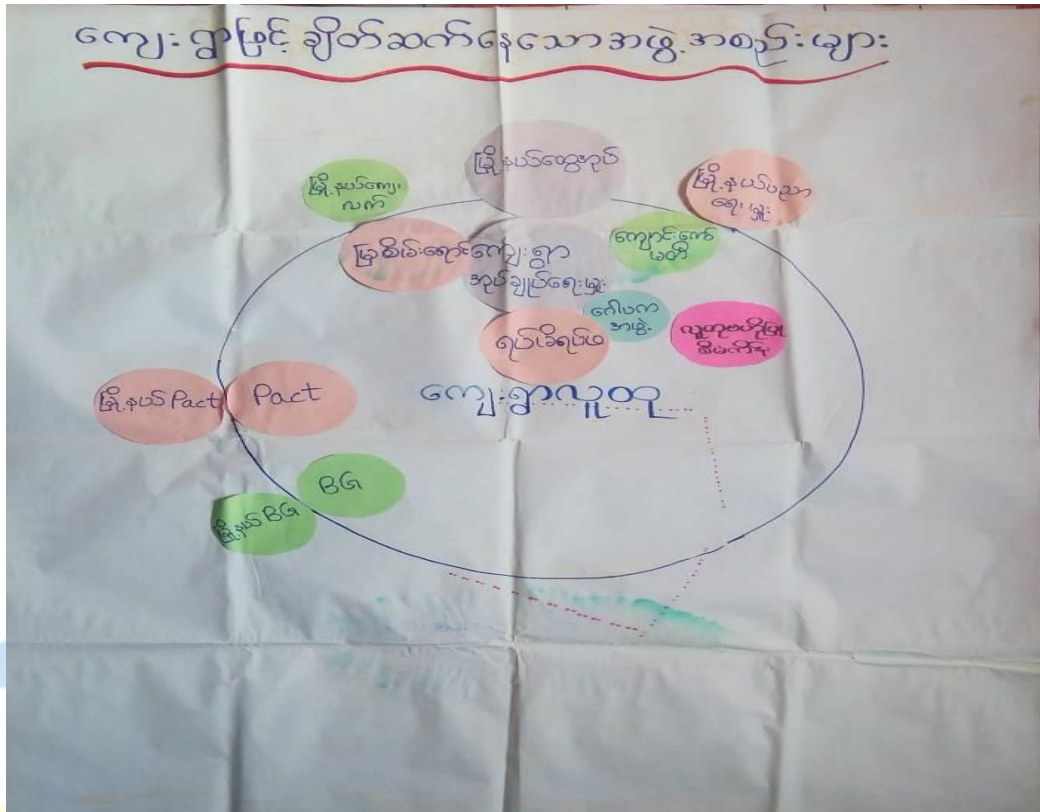 ကျေးရွာဖြင့် ချိတ်ဆက်နေသောအဖွဲ့အစည်းများ
မြို့နယ်ထွေအုပ်
မြို့နယ်ကျေး
လက်
မြို့နယ်ပညာ
ရေးမှူး
မြစိမ်းရောင်
ကျေးရွာ
အုပ်ချုပ်ရေးမှူး
ကျောင်းကော်
မတီ
ဂေါပက
အဖွဲ့
ရပ်မိရပ်ဖ
လူထုဗဟိုပြု
စီမံကိန်း
မြို့နယ် Pact
Pact
ကျေးရွာလူထု
BG
မြို့နယ် BG